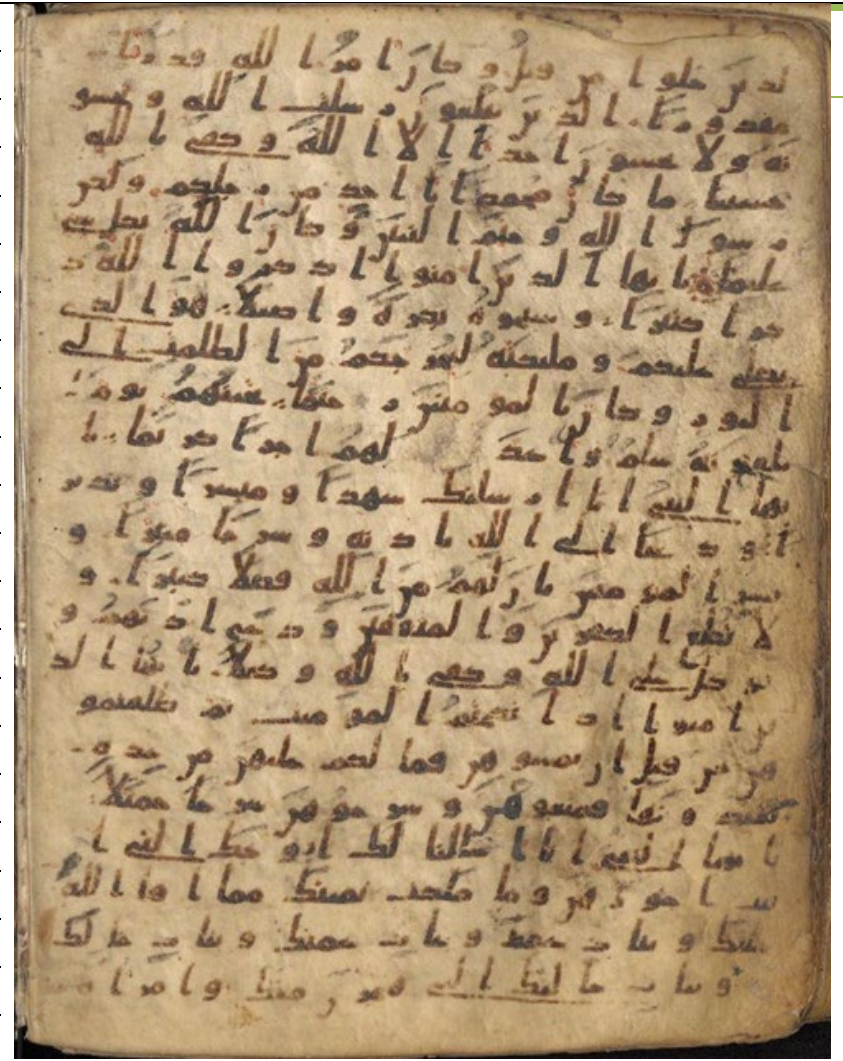 لذين خلوا من قبل وكان امر الله قدرا
مقدورا الذين يبلغون رسلت الله ويخشو
نه ولا يخشون احدا الا الله وكفى بالله
حسيبا ما كان محمد ابا احد من رجلكم ولكن
رسول الله وختم النبين وكان الله بكل شى
عليما يايها الذين امنوا اذكروا الله ذ
كرا كثيرا وسبحوه بكرة واصيلا هو الذى
يصلى عليكم وملئكته ليخرجكم من الظلمت الى
النور وكان بالمومنين رحيما تحيتهم يوم
يلقونه سلم واعد لهم اجرا كريما يا
يها النبى انا ارسلنك شهدا ومبشرا ونذير
ا وداعيا الى الله باذنه وسرجا منيرا و
بشر المومنين بان لهم من الله فضلا كبيرا و
لا تطع الكفرين والمنفقين ودع اذيهم و
توكل على الله وكفى بالله وكيلا يايها الذ
ين امنوا اذا نكحتم المومنت ثم طلقتمو
هن من قبل ان تمسوهن فما لكم عليهن من عدة
تعتدونها فمتعوهن وسرحوهن سرحا جميلا
يايها النبى انا احللنا لك ازوجك التى ا
تيت اجورهن وما ملكت يمينك مما افا الله
عليك وبنات عمك وبنات عمتك وبنات خالك
وبنات خلتك التى هجرن معك وامراة